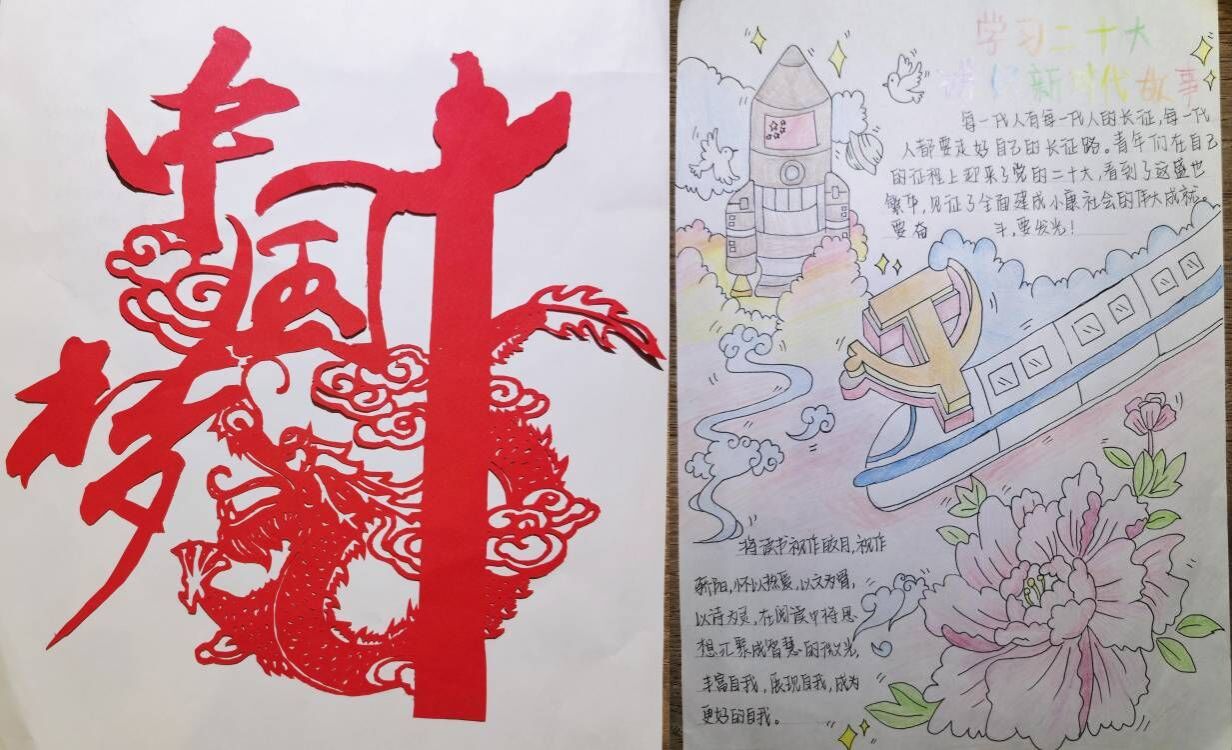 中
国
梦
学习二十大
讲好新时代故事
每一代人有每一代人的长征,每一代
人都要走好自己的长征路。青年们在自己
的征程上迎来了党的二十大,看到了这盛世
繁华,见证了全面建成小康社会的伟大成就。
要奋 斗,要发光!
将读书视作皎月,视作
骄阳,怀以热爱,以文为骨,
以诗为灵,在阅读中将思
想汇聚成智慧的微光,
丰富自我,展现自我,成为
更好的自我。